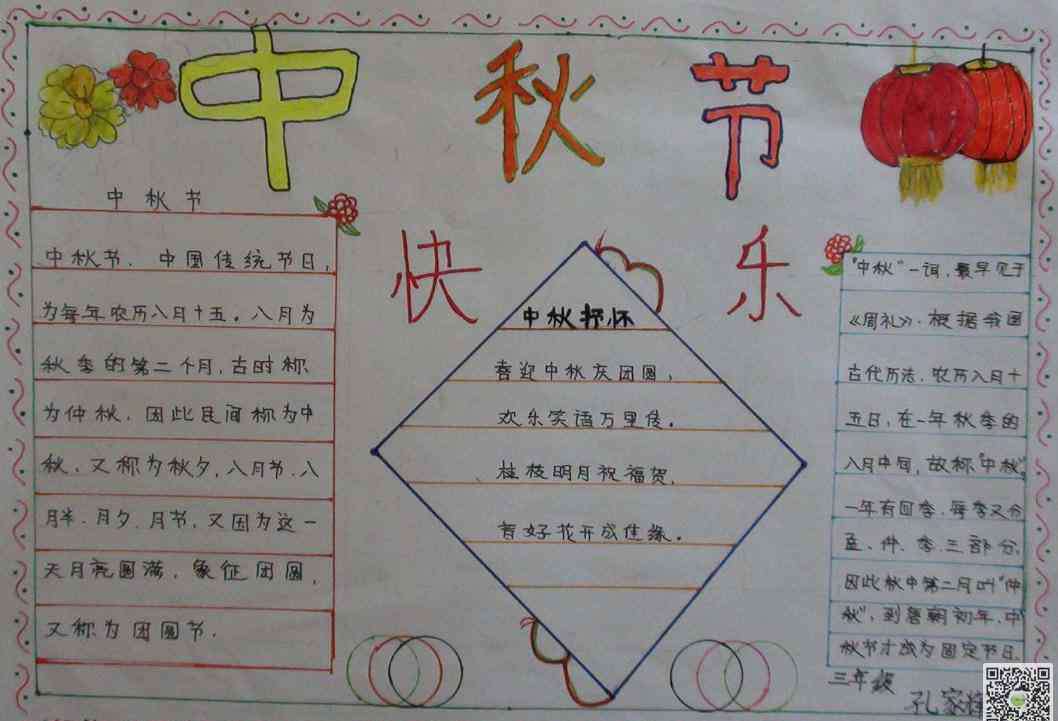 中秋节
快乐
中秋节
中秋节、中国传统节日,
为每年农历八月十五。八月为
秋季的第二个月,古时称
为仲秋,因此民间称为中
秋,又称为秋夕、八月节、八
月半、月夕、月节,又因为这一
天月亮圆满,象征团圆,
又称为团圆节.
中秋抒怀
喜迎中秋庆团圆,
欢乐笑语万里传。
桂枝明月祝福贺,
春好花开成佳缘。
"中秋"一词,最早见于
《周礼》.根据我国
古代历法,农历八月十
五日,在一年秋季的
八月中旬,故称"中秋"。
一年有四季,每季又分
孟、仲、季、三部分,
因此秋中第二月叫"仲
秋",到唐朝初年,中
秋节才成为固定节日.
三年级
孔家